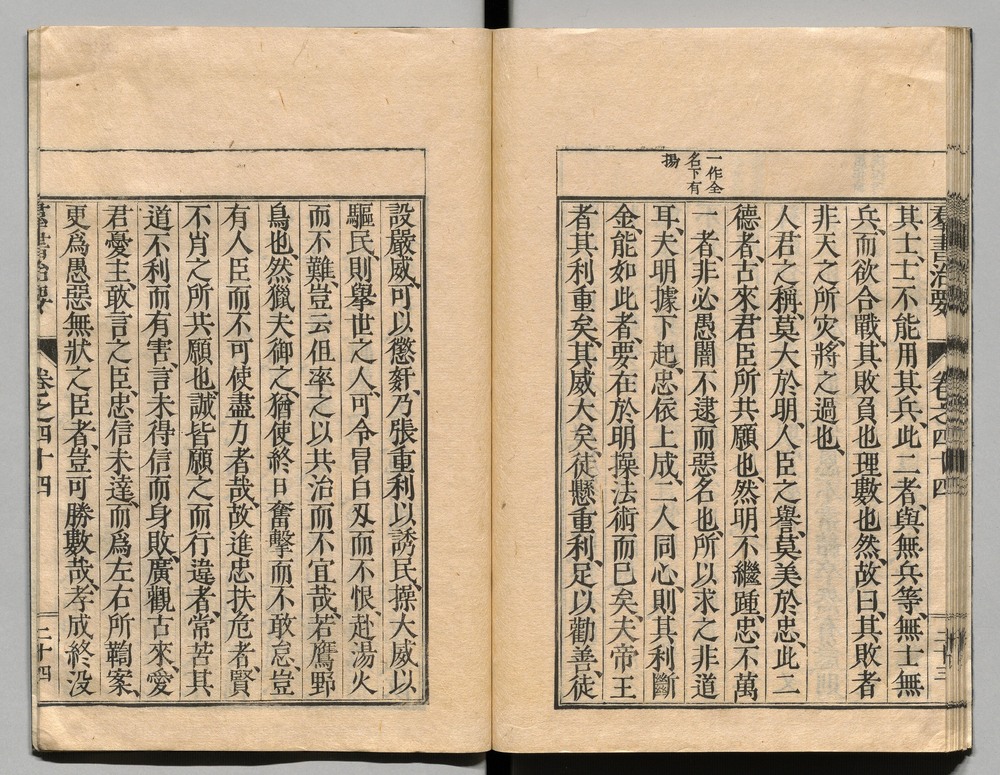 羣書治要 卷之四十四 二十三
一作全
名下有
揚
其士、士不能用其兵、此二者與無兵等、無士無
兵、而欲合戰、其敗負也、理數也然、故曰、其敗者
非天之所灾、將之過也、
人君之稱、莫大於明、人臣之譽、莫美於忠、此二
德者、古來君臣所共願也、然明不繼踵、忠不萬
一者、非必愚闇不逮而惡名也、所以求之非道
耳、夫明據下起、忠依上成、二人同心、則其利斷
金、能如此者、要在於明操法術而已矣、夫帝王
者其利重矣、其威大矣、徒懸重利、足以勸善、徒
設嚴威、可以懲姧、乃張重利以誘民、操大威以
驅民、則舉世之人、可令冒白刄而不恨、赴湯火
而不難、豈云但率之以共治而不宜哉、若鷹野
鳥也、然獵夫御之、猶使終日奮擊而不敢怠、豈
有人臣而不可使盡力者哉、故進忠扶危者、賢
不肖之所共願也、誠皆願之而行違者、常苦其
道不利而有害、言未得信而身敗、廣觀古來、愛
君憂主、敢言之臣、忠信未達、而爲左右所鞫案、
更爲愚惡無狀之臣者、豈可勝數哉、孝成終没
羣書治要 卷之四十四 二十四